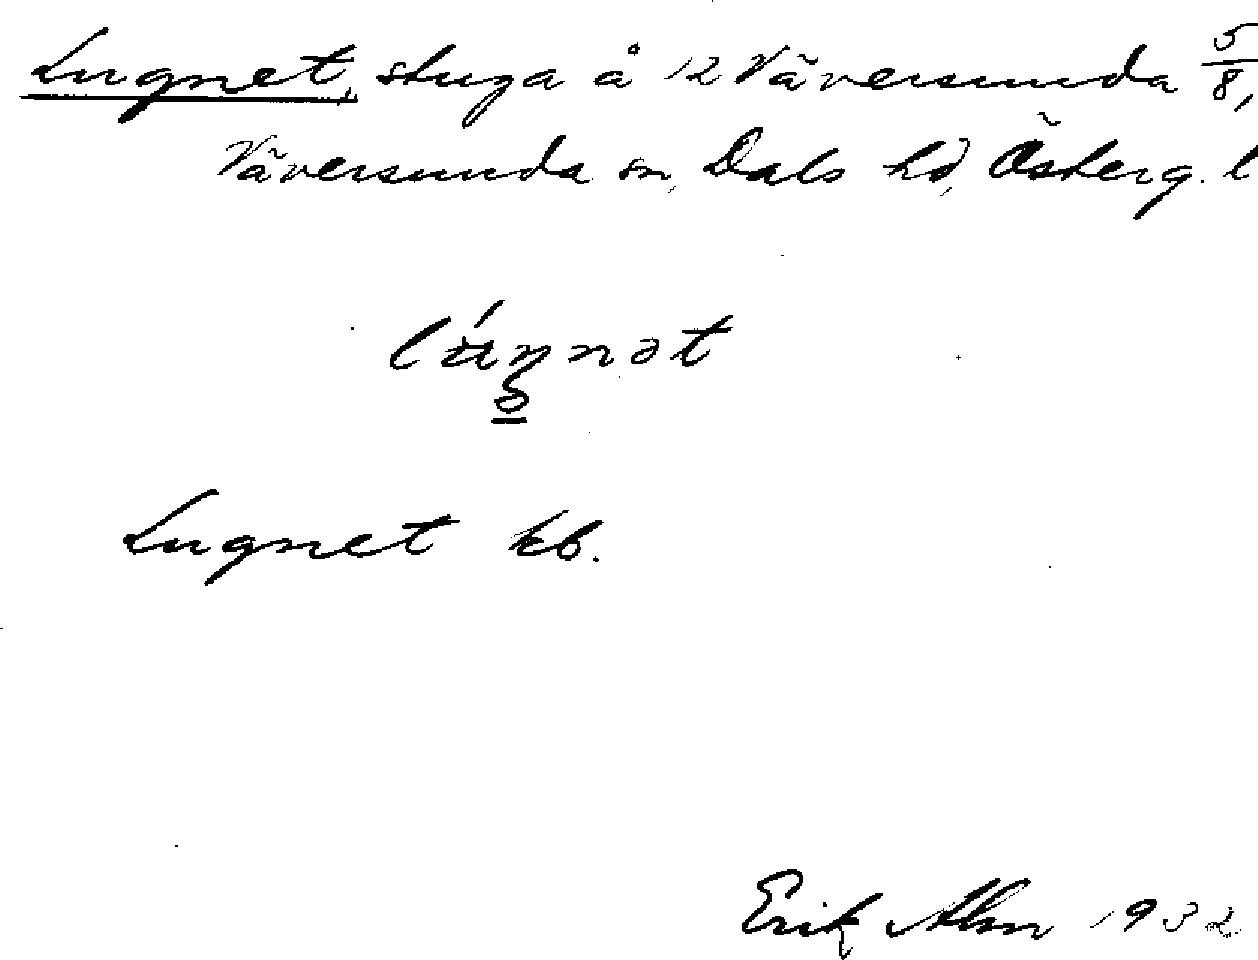 Lugnet, stuga å 12 Väversunda 5/8,
Väversunda sn, Dals hd, Österg. l
Lugnet kb.
Erik Alm 1932